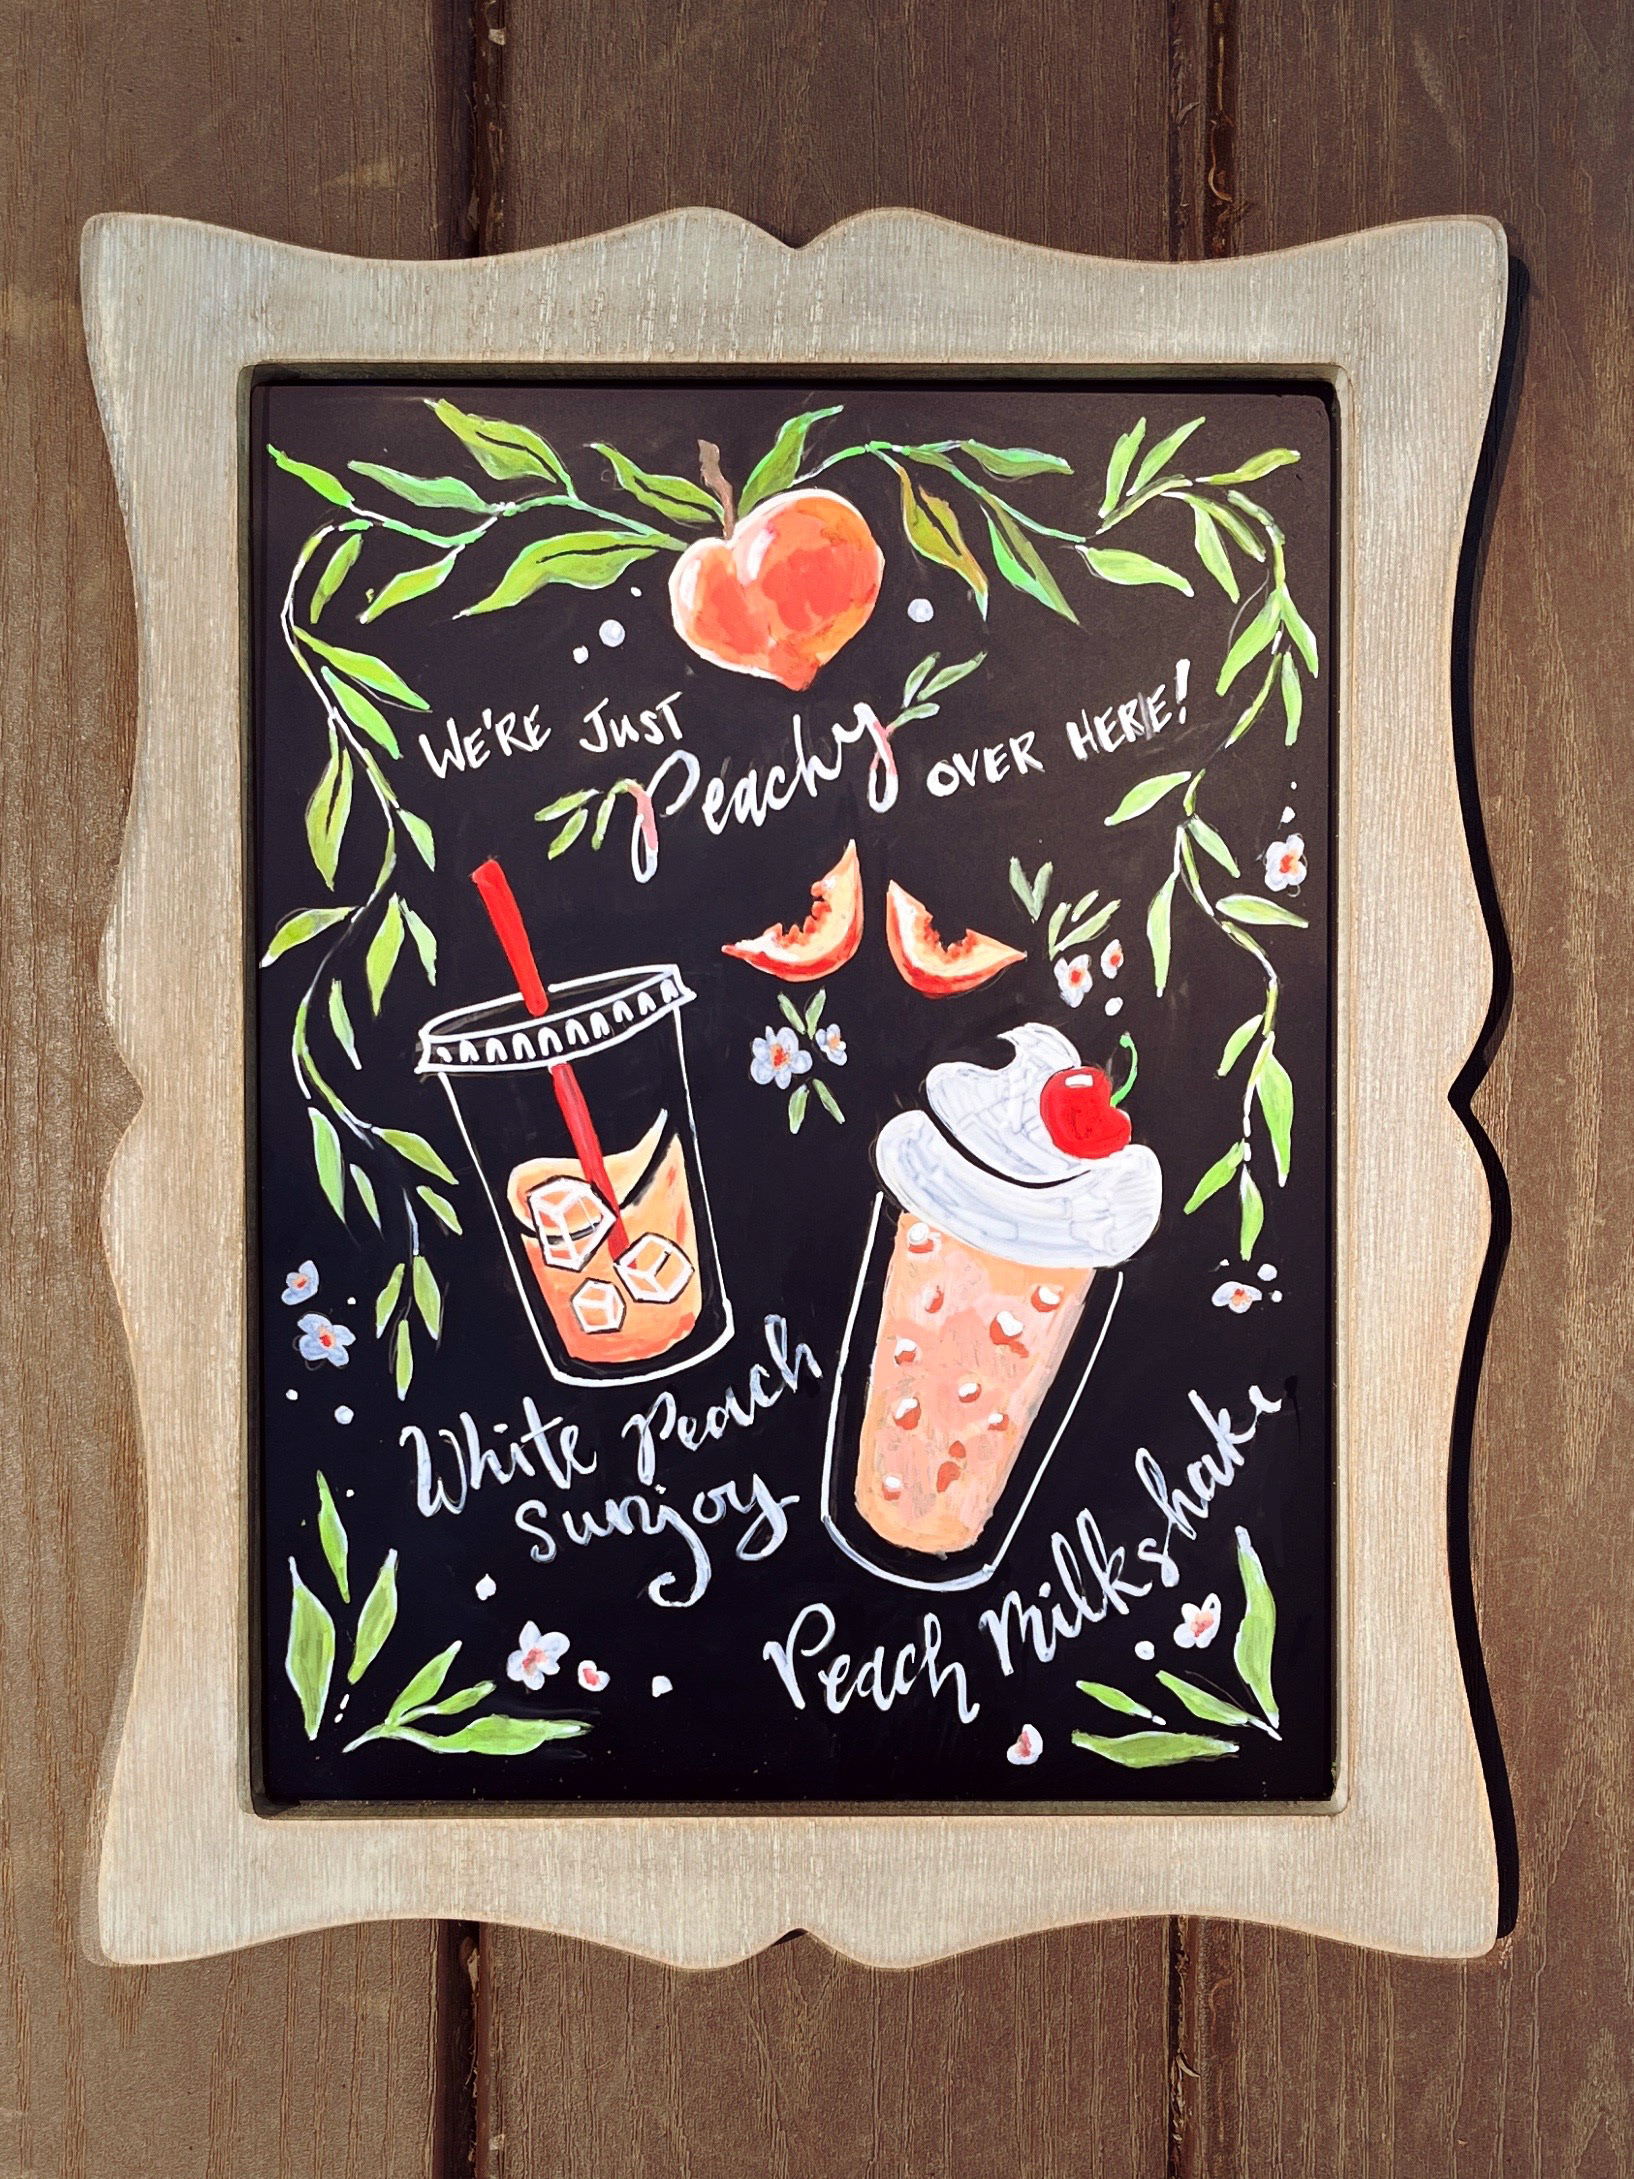 WE'RE JUST Peachy OVER HERE!
White Peach
Sunjoy
Peach Milkshake